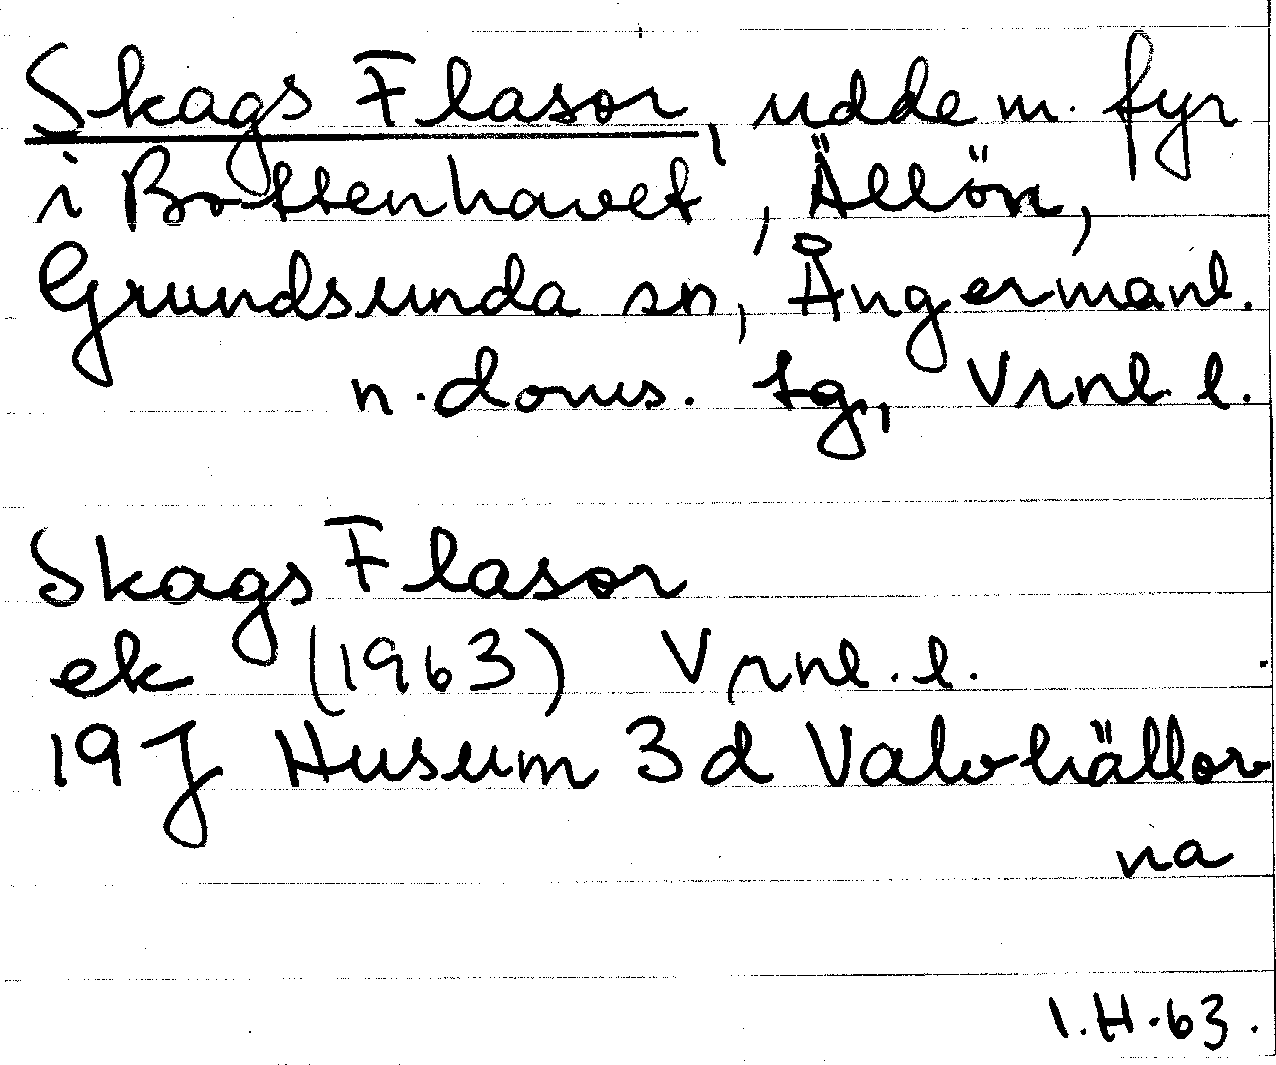 Skags Flasor, udde m. fyr
i Bottenhavet, Ällön,
Grundsunda sn, Ångermanl.
n. doms. tg, Vrnl. l.
Skags Flasor
ek (1963) Vrnl. l.
19 J Husum 3 d Valvhällor
na
I.H.63.